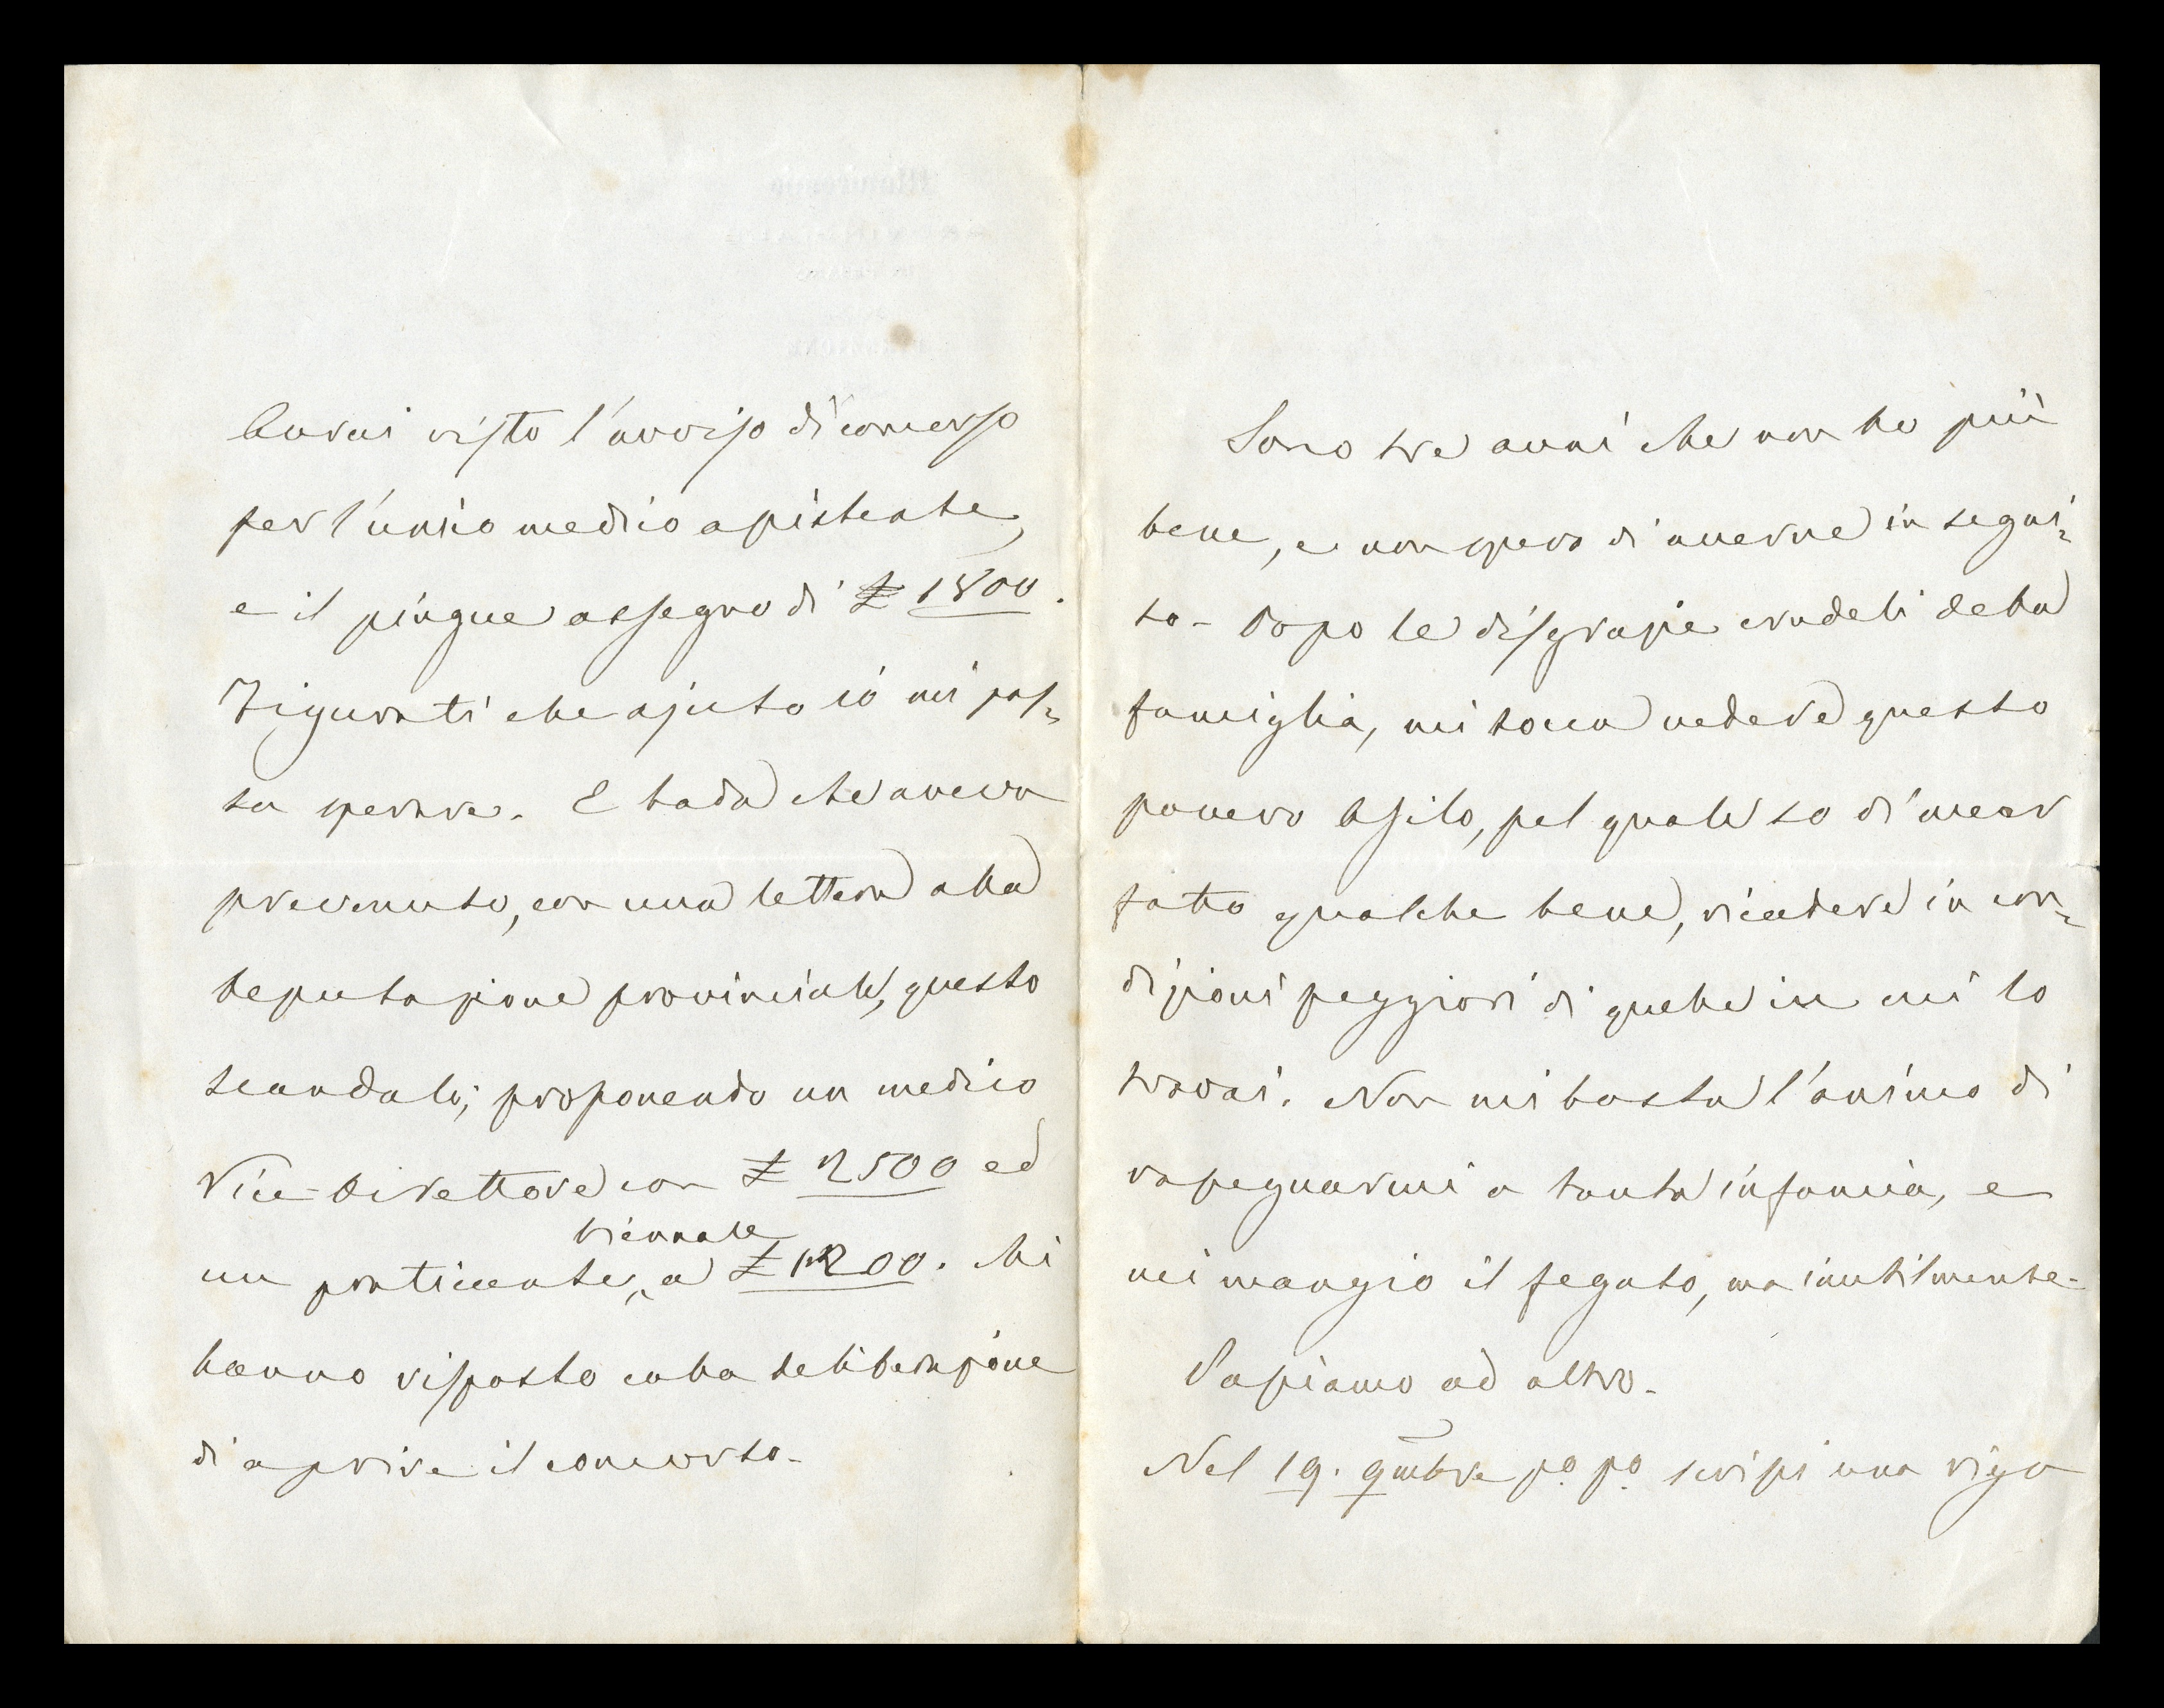 Avrai visto l'avviso di concorso
per l'unico medico assistente,
e il pingue assegno di £ 1800.
Figurati che ajuto io mi pos=
sa sperare. E bada che aveva
prevenuto, con una lettera alla
Deputazione provinciale, questo
scandalo; proponendo un medico
Vice-Direttore con £ 2500 ed
un praticante, biennale a £ 1200. Mi
hanno risposto colla deliberazione
di aprire il concorso.
Sono tre anni che non ho più
bene, e non spero di averne in segui=
to. Dopo le disgrazie crudeli della
famiglia, mi tocca vedere questo
povero Asilo, pel quale so di aver
fatto qualche bene, ricadere in con=
dizioni peggiori di quelle in cui lo
trovai. Non mi basta l'animo di
rassegnarmi a tanta infamia, e
mi mangio il fegato, ma inutilmente.
Passiamo ad altro.
Nel 19. 9mbre po. po. scrissi una riga